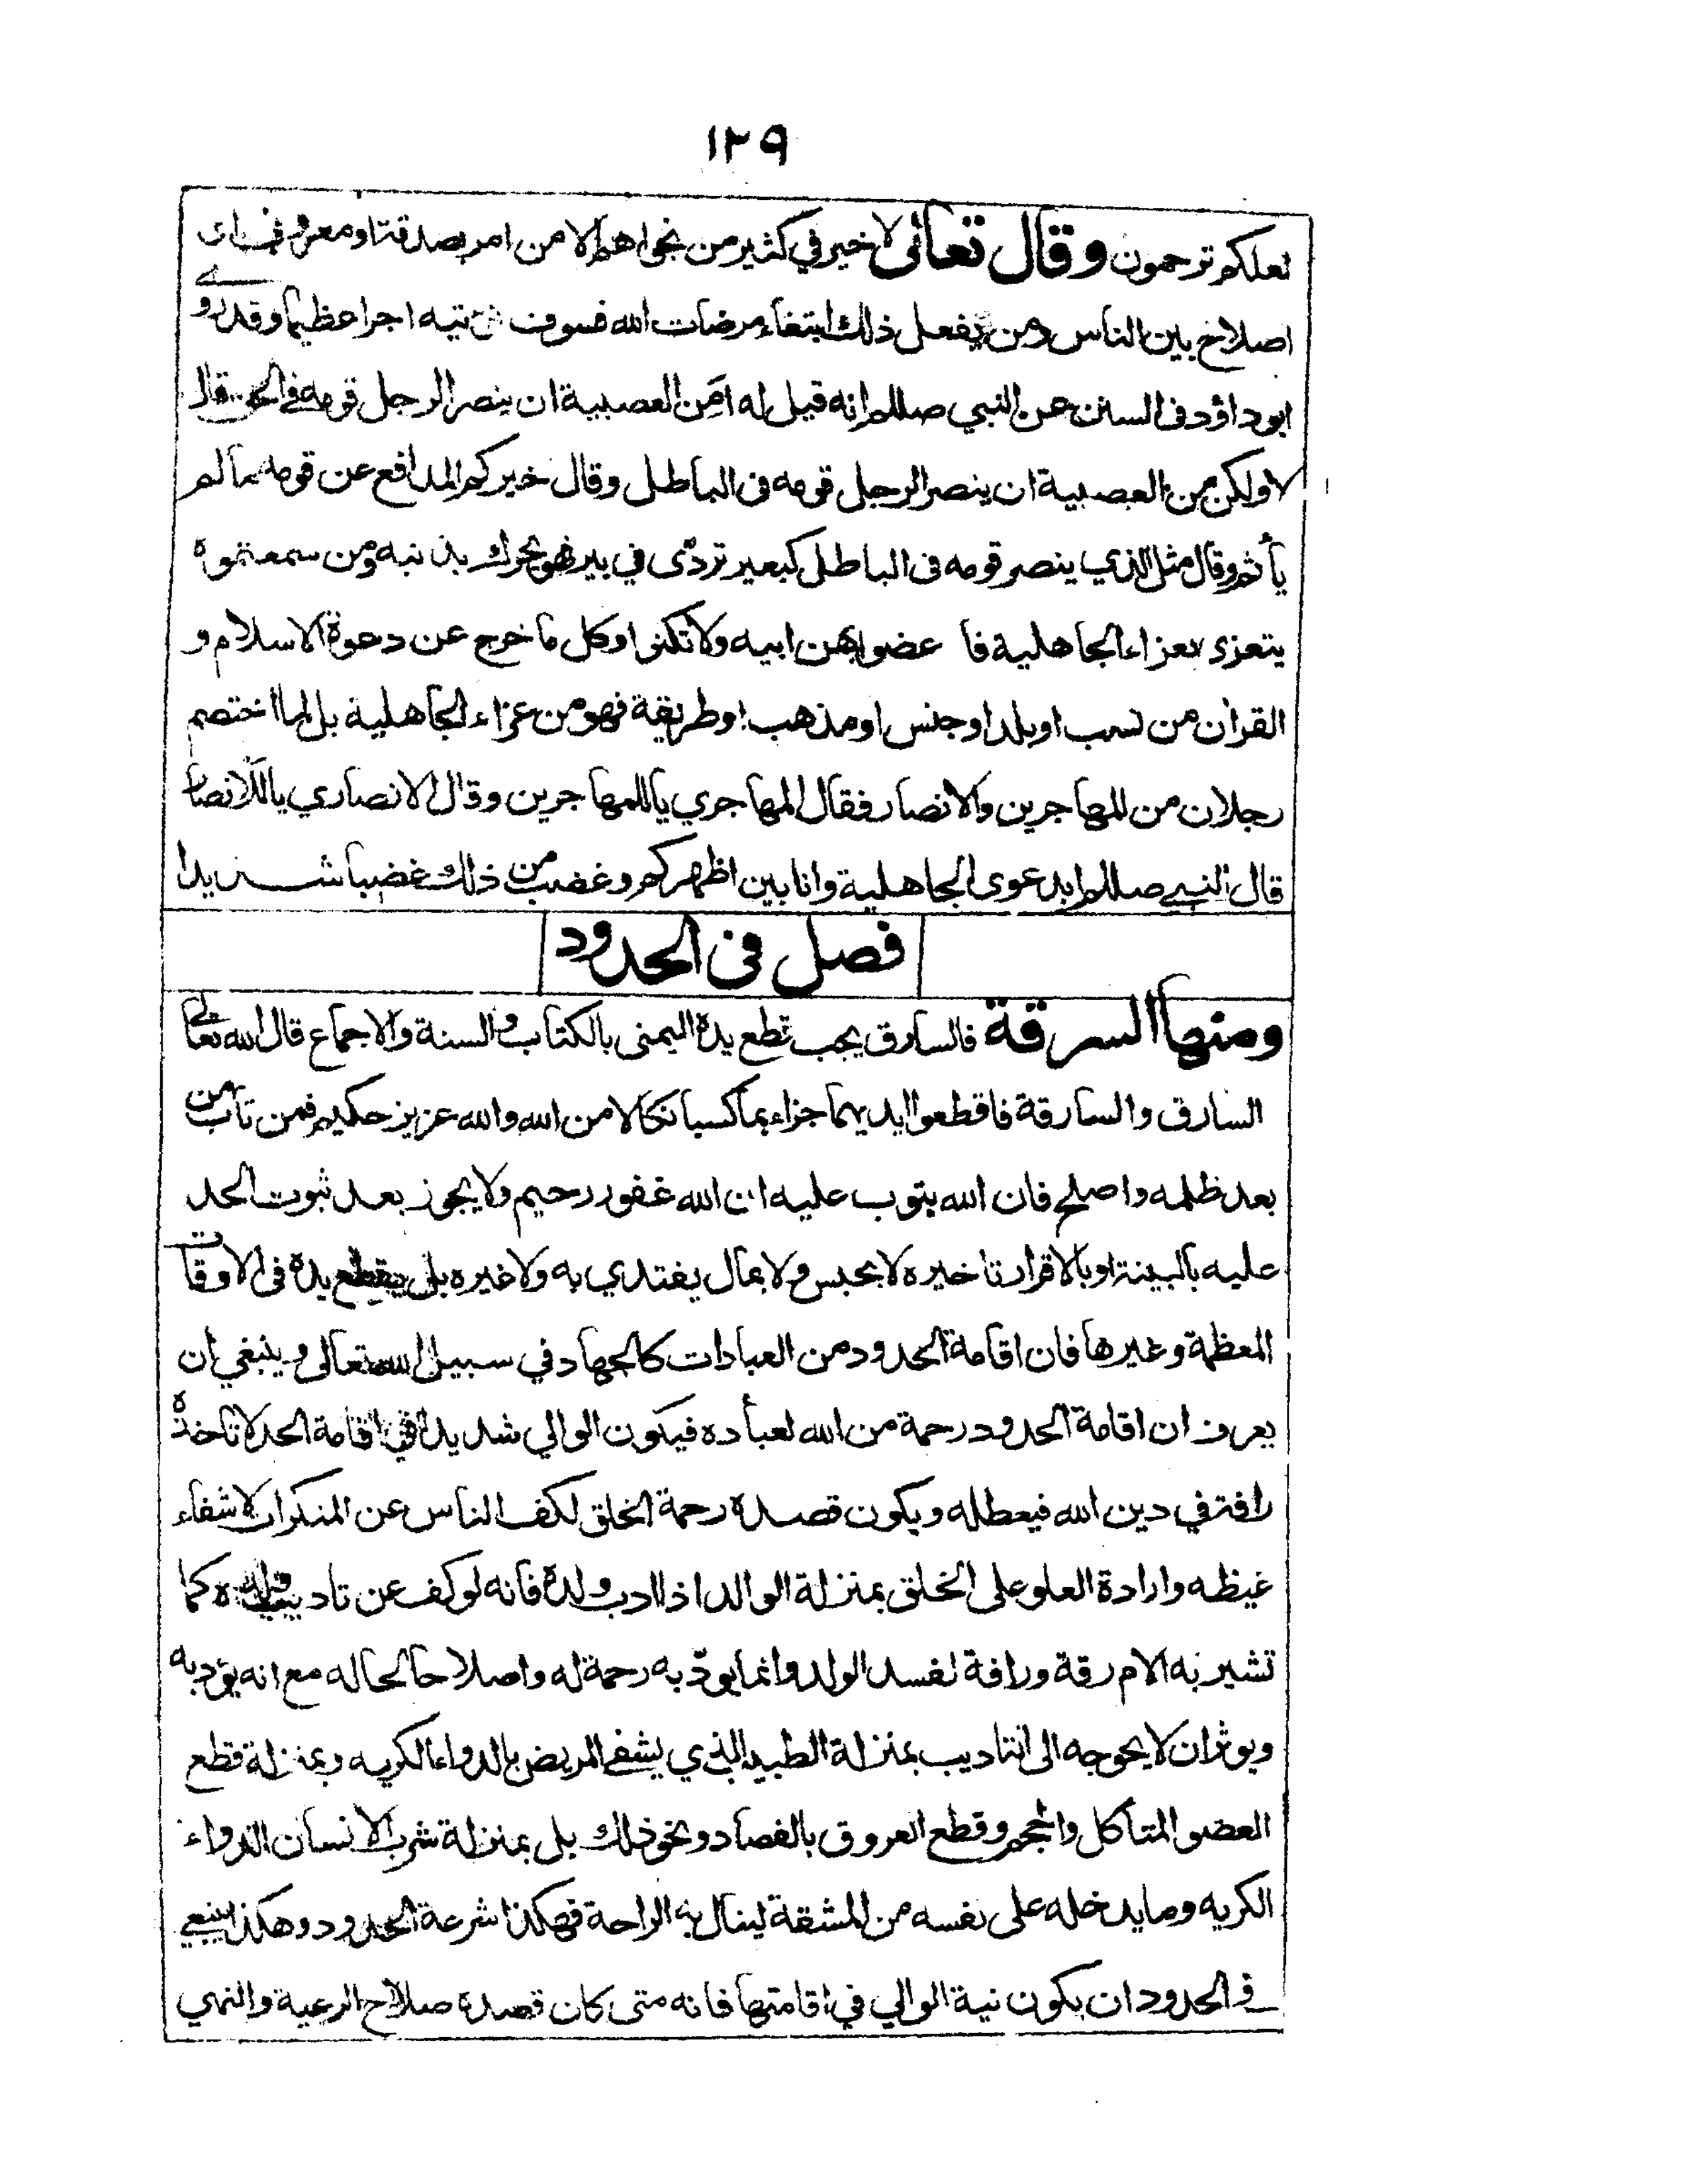 ١٢٩
لعلكم ترحمون وقال تعالى لا خير في كثير من نجواهم الا من امر بصدقة او معروف او
اصلاح بين الناس ومن يفعل ذلك ابتغاء مرضات الله فسوف نؤتيه اجرا عظيما وقد روى
ابوداؤد فى السنن عن النبي صللم انه قيل له أمن العصبية ان ينصر الرجل قومه فى الحق قال
لا ولكن من العصبية ان ينصر الرجل قومه فى الباطل وقال خيركم المدافع عن قومه ما لم
يأثم وقال مثل الذي ينصر قومه فى الباطل كبعير تردّى في بير فهو يحرك بذنبه ومن سمعتموه
يتعزى بعزاء الجاهلية فا عضوا بهن ابيه ولا تكنوا وكل ما خرج عن دعوة الاسلام و
القران من نسب او بلد او جنس او مذهب او طريقة فهو من عزاء الجاهلية بل لما اختصم
رجلان من المهاجرين والانصار فقال المهاجري ياللمهاجرين وقال الانصاري ياللانصار
قال النبي صللم ابدعوى الجاهلية وانا بين اظهركم وغضب من ذلك غضبا شديدا
فصل فى الحدود
ومنها السرقة فالسارق يجب قطع يده اليمنى بالكتاب والسنة والاجماع قال الله تعالى
السارق والسارقة فاقطعوا ايديهما جزاء بما كسبا نكالا من الله والله عزيز حكيم فمن تاب من
بعد ظلمه واصلح فان الله يتوب عليه ان الله غفور رحيم ولا يجوز بعد ثبوت الحد
عليه بالبينة او بالاقرار تاخيره لا بحبس ولا بمال يفتدي به ولا غيره بل يقطع يده فى الاوقات
المعظمة وغيرها فان اقامة الحدود من العبادات كالجهاد في سبيل الله تعالى وينبغي ان
يعرف ان اقامة الحدود رحمة من الله لعباده فيكون الوالي شديدا في اقامة الحد لا تاخذه
رافة في دين الله فيعطله ويكون قصده رحمة الخلق لكف الناس عن المنكرات لا شفاء
غيظه وارادة العلو على الخلق بمنزلة الوالد اذا ادب ولده فانه لو كف عن تاديب ولده كما
تشير به الام رقة ورافة لفسد الولد وانما يودّبه رحمة له واصلاحا لحاله مع انه يؤدبه
ويوثر ان لا يحوجه الى التاديب بمنزلة الطبيب الذي يشفي المريض بالدواء الكريه وبمنزلة قطع
العضو المتاكل والحجم وقطع العروق بالفصاد ونحو ذلك بل بمنزلة شرب الانسان الدواء
الكريه وما يدخله على نفسه من المشقة لينال به الراحة فهكذا شرعة الحدود وهكذا ينبغي
فى الحدود ان يكون نية الوالي في اقامتها فانه متى كان قصده صلاح الرعية والنهي